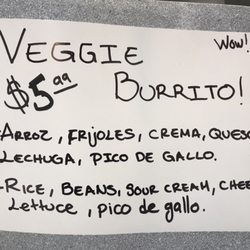 VEGGIE
Wow!
$5.99 BURRITO!
-ARROZ, FRIJOLES, CREMA, QUESO
LECHUGA, PICO DE GALLO.
-RICE, BEANS, SOUR CREAM, CHEE
Lettuce, pico de gallo.